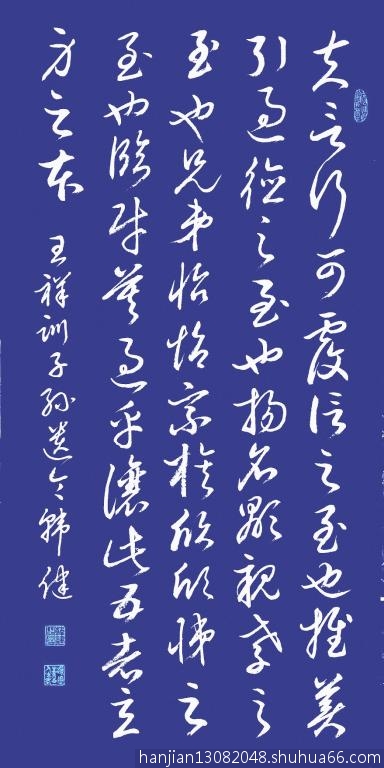 夫言行可覆信之至也推美
引過德之至也揚名顯親孝之
至也兄弟怡怡宗族欣欣悌之
至也臨財莫過乎讓此五者立
身之本 王祥訓子孫遺令 韓健
hanjian13082048.shuhua66.com